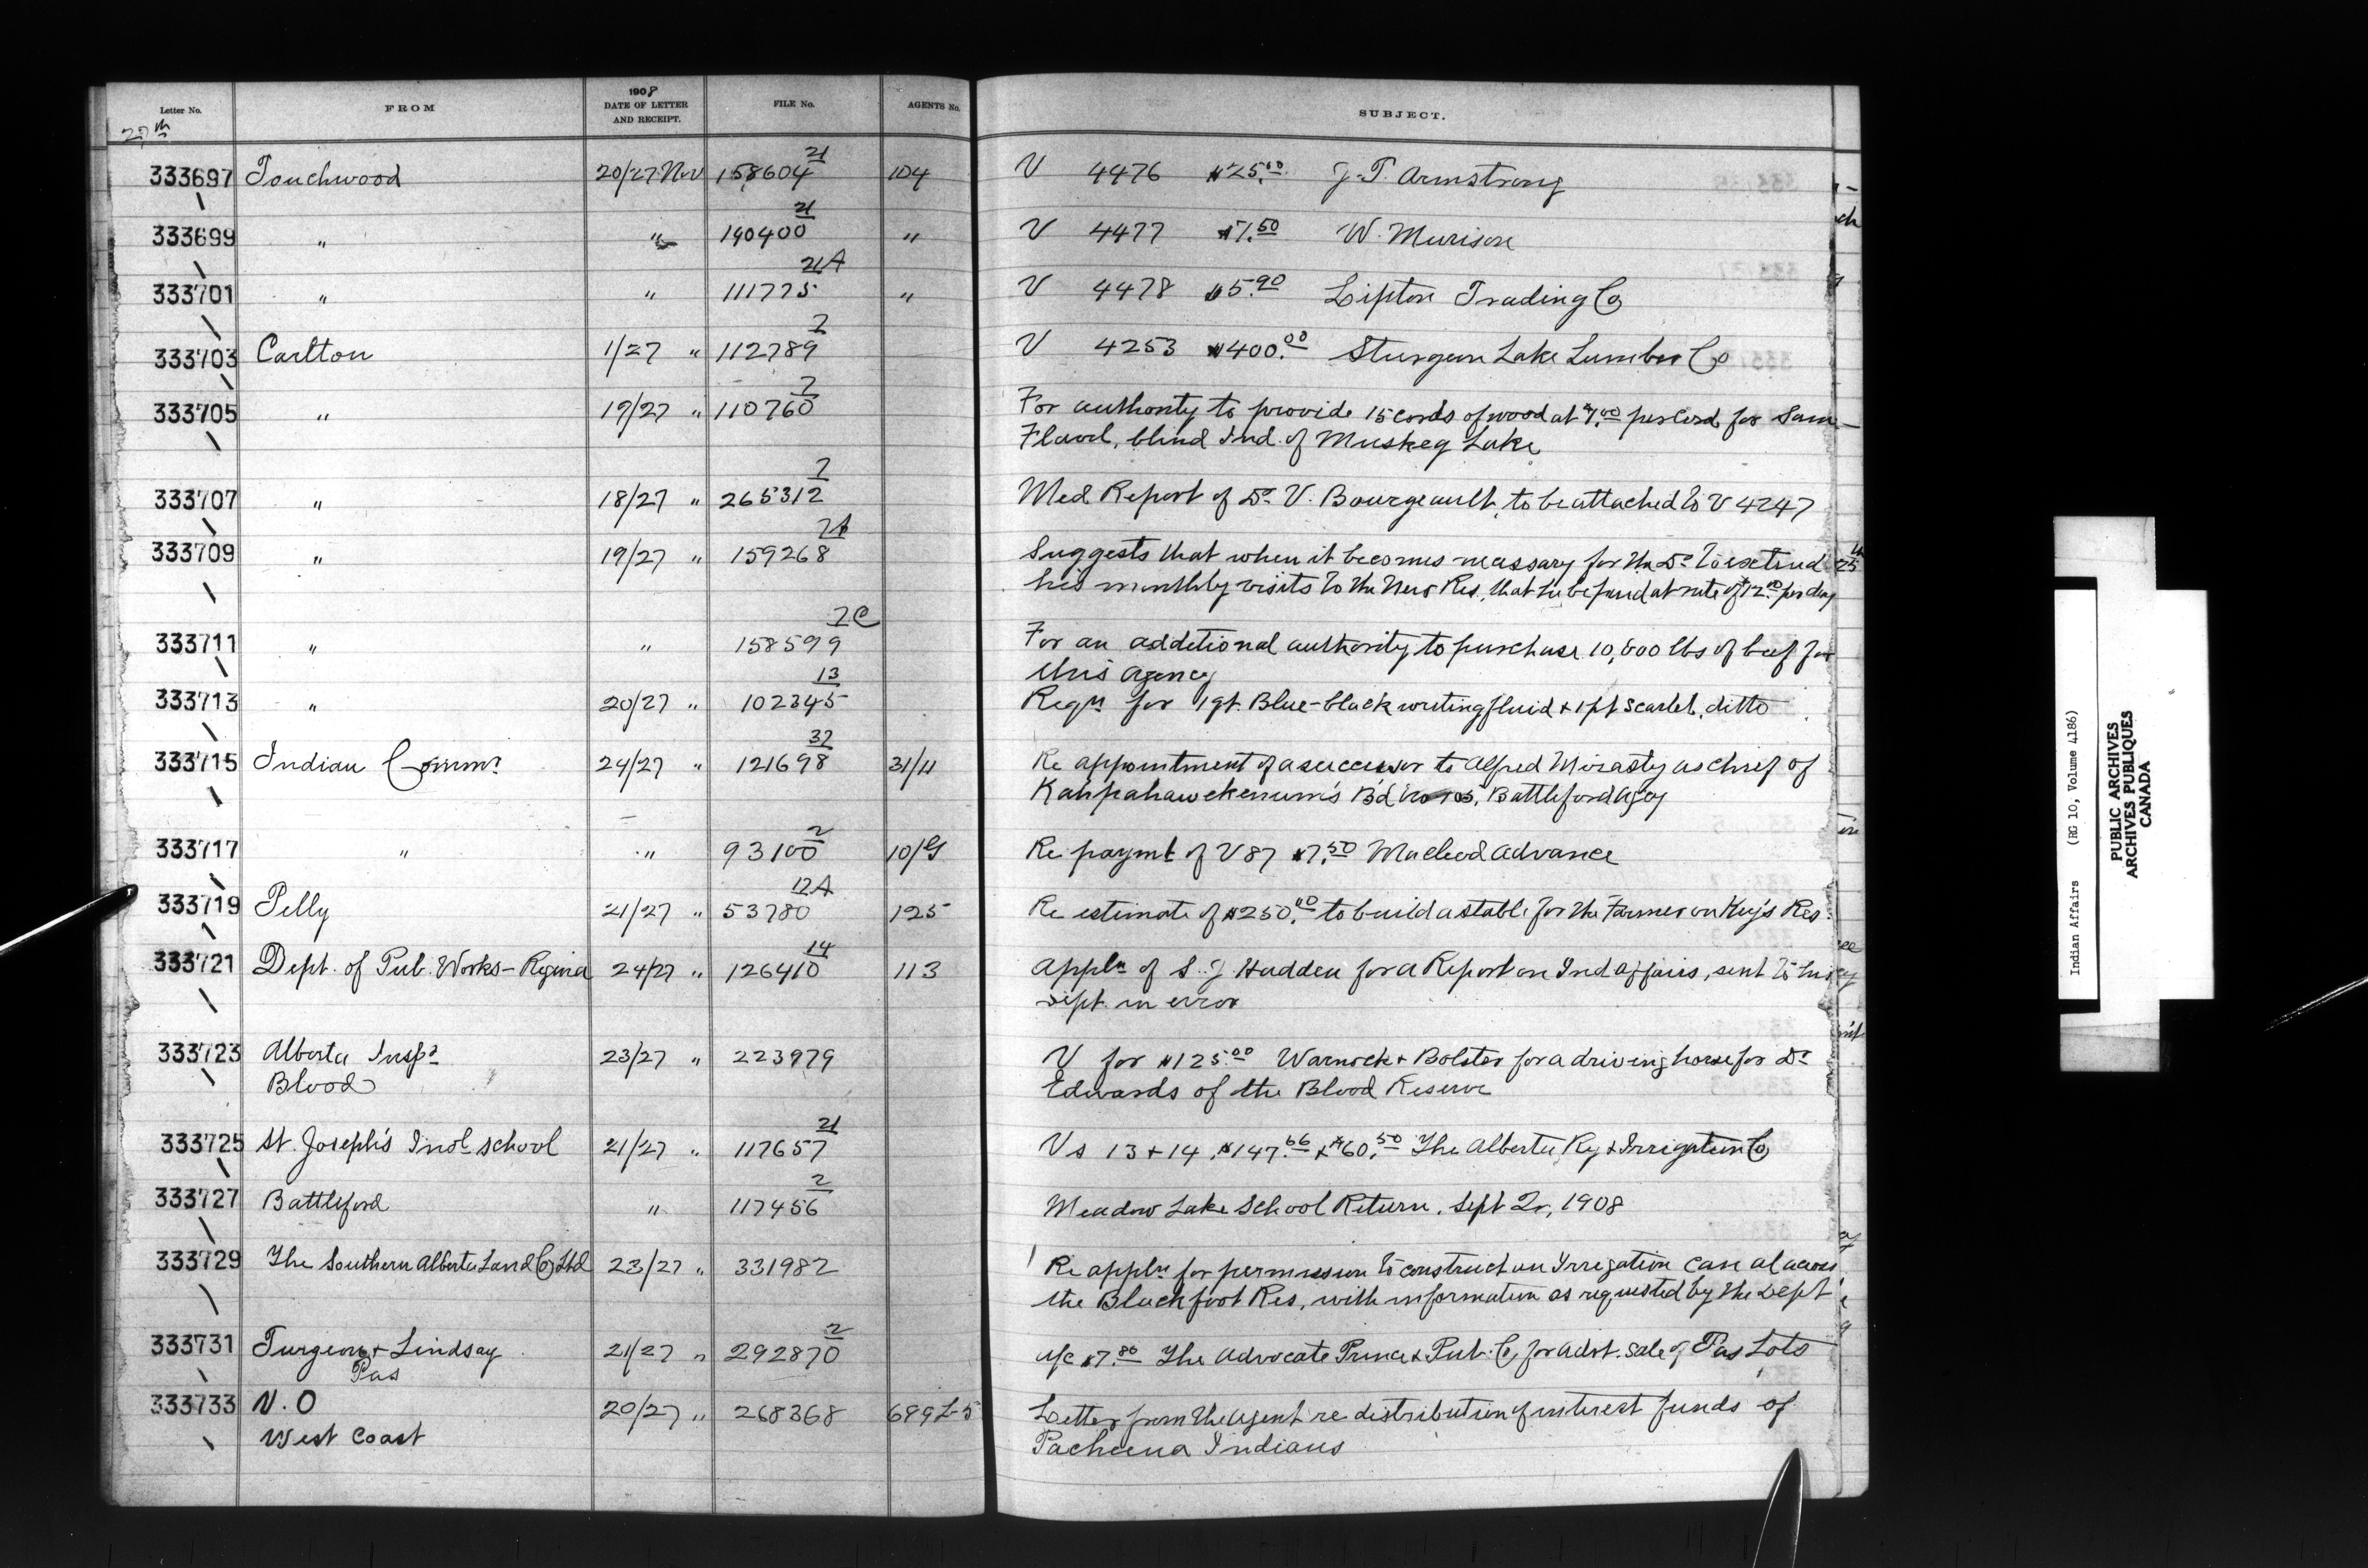 Letter No. FROM 1908 DATE OF LETTER AND RECEIPT. FILE No. AGENTS No. SUBJECT.
27th
333697 Touchwood 20/27 Nov 158604 21 104 V 4476 $25.00 J. T. Armstrong
333699 " " 190400 21 " V 4477 $7.50 W. Murison
333701 " " 111775 21A " V 4478 $5.90 Lipton Trading Co
333703 Carlton 1/27 " 112789 2 V 4253 $400.00 Sturgeon Lake Lumber Co
333705 " 19/27 " 110760 2 For authority to provide 15 cords of wood at per cord for Sam
blind Ind. of Muskeg Lake
333707 " 18/27 " 265312 2 Med Report of Dr. V. Bourgeault, to be attached to V 4247
333709 " 19/27 " 159268 Suggests that when it becomes necessary for the Dr to extend
his monthly visits to the New Res, that he be paid at rate of $12.00 per day
333711 " " 158599 2C For an additional authority to purchase 10,000 lbs of beef for
this agency
333713 " 20/27 " 102345 13 Reqn for 1 qt. Blue-black writing fluid + 1 pt Scarlet, ditto
333715 Indian Commr 24/27 " 121698 31/11 Re appointment of a successor to Alfred Mirasty as chief of
Bd Battleford Agcy
333717 " " 93100 2 10/G Re paymt of V 87 $7.50 Macleod Advance
333719 Pelly 21/27 " 53780 12A 125 Re estimate of $250.00 to build a stable for the Farmer on Key's Res.
333721 Dept. of Pub. Works - Regina 24/27 " 126410 14 113 Appln of S. J Hadden for a Report on Ind affairs, sent to this
Dept. in error
333723 Alberta Inspr 23/27 " 223979 V for $125.00 Warnock + Bolster for a driving horse for Dr
Blood Edwards of the Blood Reserve
333725 St. Joseph's Indl School 21/27 " 117657 21 Vs 13 + 14, $147.66 + $60.50 The Alberta Ry + Irrigation Co
333727 Battleford " 117456 2 Meadow Lake School Return, Sept Qr, 1908
333729 The Southern Alberta Land Co Ltd 23/27 " 331982 Re appln for permission to construct an Irrigation Canal across
the Blackfoot Res, with information as requested by the Dept
333731 Turgeon + Lindsay 21/27 " 292870 2 a/c The Advocate & Pub. Co for advt. sale of Pas Lots
Pas
333733 V. O 20/27 " 268368 699 L-5 Letter from the Agent re distribution of interest funds of
West Coast Pacheena Indians
Indian Affairs (RG 10, Volume 4186)
PUBLIC ARCHIVES
ARCHIVES PUBLIQUES
CANADA